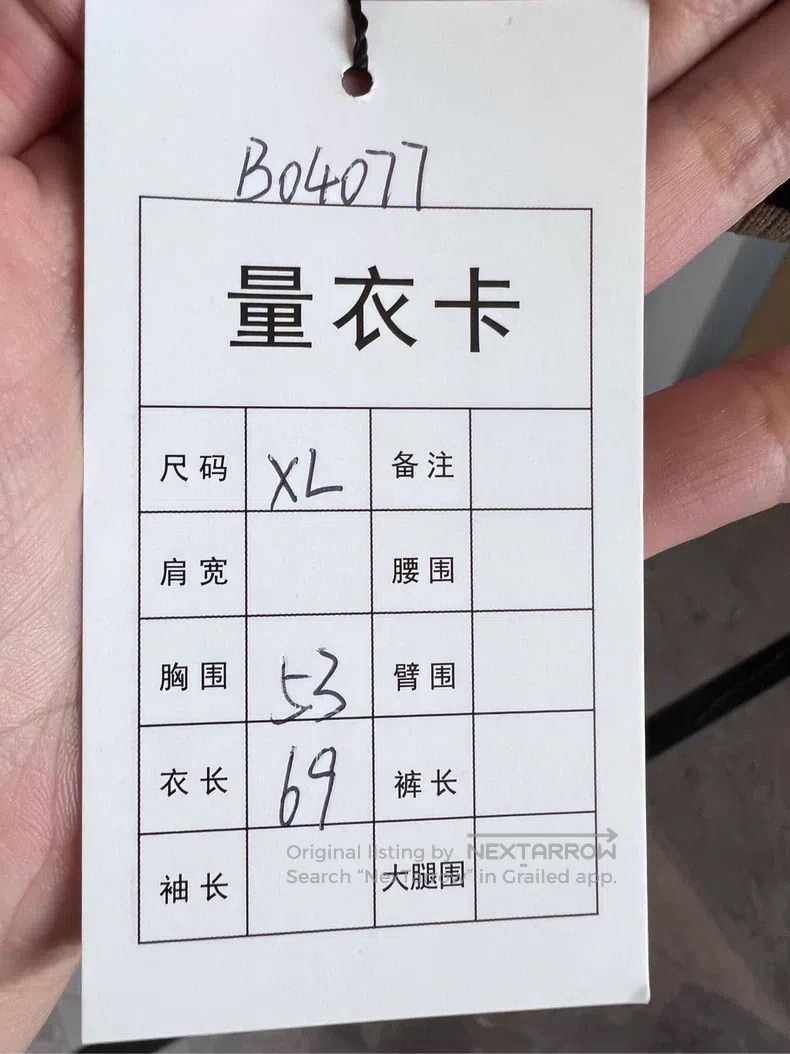 B04077
量衣卡
尺码 XL 备注
肩宽 腰围
胸围 53 臂围
衣长 69 裤长
袖长 大腿围
Original listing by NEXTARROW
Search “NexTarrow” in Grailed app.